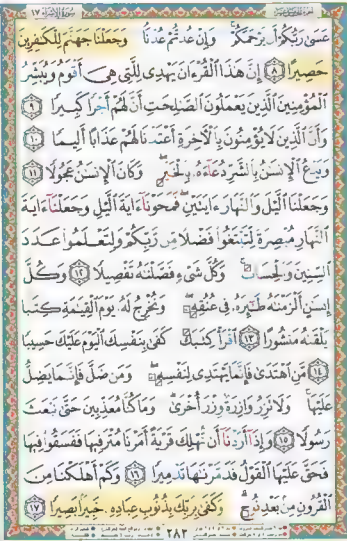 سورة الإسراء ١٧
عَسَىٰ رَبُّكُمْ أَن يَرْحَمَكُمْ ۚ وَإِنْ عُدتُّمْ عُدْنَا ۘ وَجَعَلْنَا جَهَنَّمَ لِلْكَٰفِرِينَ
حَصِيرًا ٨ إِنَّ هَٰذَا ٱلْقُرْءَانَ يَهْدِى لِلَّتِى هِىَ أَقْوَمُ وَيُبَشِّرُ
ٱلْمُؤْمِنِينَ ٱلَّذِينَ يَعْمَلُونَ ٱلصَّٰلِحَٰتِ أَنَّ لَهُمْ أَجْرًا كَبِيرًا ٩
وَأَنَّ ٱلَّذِينَ لَا يُؤْمِنُونَ بِٱلْءَاخِرَةِ أَعْتَدْنَا لَهُمْ عَذَابًا أَلِيمًا ١٠
وَيَدْعُ ٱلْإِنسَٰنُ بِٱلشَّرِّ دُعَآءَهُۥ بِٱلْخَيْرِ ۖ وَكَانَ ٱلْإِنسَٰنُ عَجُولًا ١١
وَجَعَلْنَا ٱلَّيْلَ وَٱلنَّهَارَ ءَايَتَيْنِ ۖ فَمَحَوْنَآ ءَايَةَ ٱلَّيْلِ وَجَعَلْنَآ ءَايَةَ
ٱلنَّهَارِ مُبْصِرَةً لِّتَبْتَغُوا۟ فَضْلًا مِّن رَّبِّكُمْ وَلِتَعْلَمُوا۟ عَدَدَ
ٱلسِّنِينَ وَٱلْحِسَابَ ۚ وَكُلَّ شَىْءٍ فَصَّلْنَٰهُ تَفْصِيلًا ١٢ وَكُلَّ
إِنسَٰنٍ أَلْزَمْنَٰهُ طَٰٓئِرَهُۥ فِى عُنُقِهِۦ ۖ وَنُخْرِجُ لَهُۥ يَوْمَ ٱلْقِيَٰمَةِ كِتَٰبًا
يَلْقَىٰهُ مَنشُورًا ١٣ ٱقْرَأْ كِتَٰبَكَ كَفَىٰ بِنَفْسِكَ ٱلْيَوْمَ عَلَيْكَ حَسِيبًا
١٤ مَّنِ ٱهْتَدَىٰ فَإِنَّمَا يَهْتَدِى لِنَفْسِهِۦ ۖ وَمَن ضَلَّ فَإِنَّمَا يَضِلُّ
عَلَيْهَا ۚ وَلَا تَزِرُ وَازِرَةٌ وِزْرَ أُخْرَىٰ ۗ وَمَا كُنَّا مُعَذِّبِينَ حَتَّىٰ نَبْعَثَ
رَسُولًا ١٥ وَإِذَآ أَرَدْنَآ أَن نُّهْلِكَ قَرْيَةً أَمَرْنَا مُتْرَفِيهَا فَفَسَقُوا۟ فِيهَا
فَحَقَّ عَلَيْهَا ٱلْقَوْلُ فَدَمَّرْنَٰهَا تَدْمِيرًا ١٦ وَكَمْ أَهْلَكْنَا مِنَ
ٱلْقُرُونِ مِنۢ بَعْدِ نُوحٍ ۗ وَكَفَىٰ بِرَبِّكَ بِذُنُوبِ عِبَادِهِۦ خَبِيرًۢا بَصِيرًا ١٧
٢٨٣